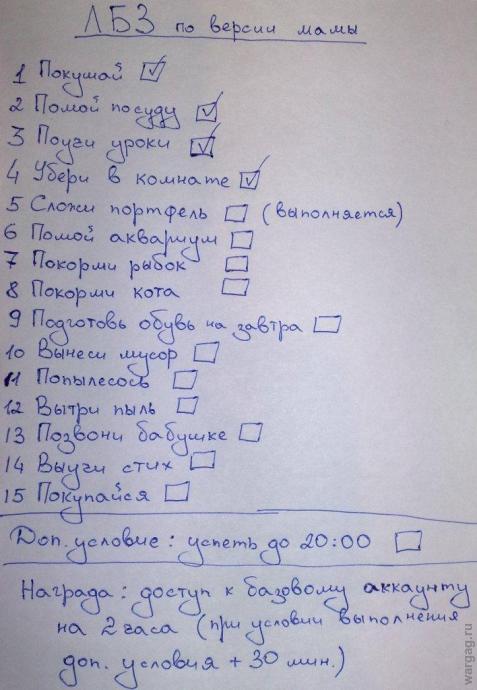 ЛБЗ по версии мамы
1 Покушай
2 Помой посуду
3 Поучи уроки
4 Убери в комнате
5 Сложи портфель (выполняется)
6 Помой аквариум
7 Покорми рыбок
8 Покорми кота
9 Подготовь обувь на завтра
10 Вынеси мусор
11 Попылесось
12 Вытри пыль
13 Позвони бабушке
14 Выучи стих
15 Покупайся
Доп. условие: успеть до 20:00
Награда: доступ к базовому аккаунту
на 2 часа (при условии выполнения
доп. условия + 30 мин.)
wargag.ru